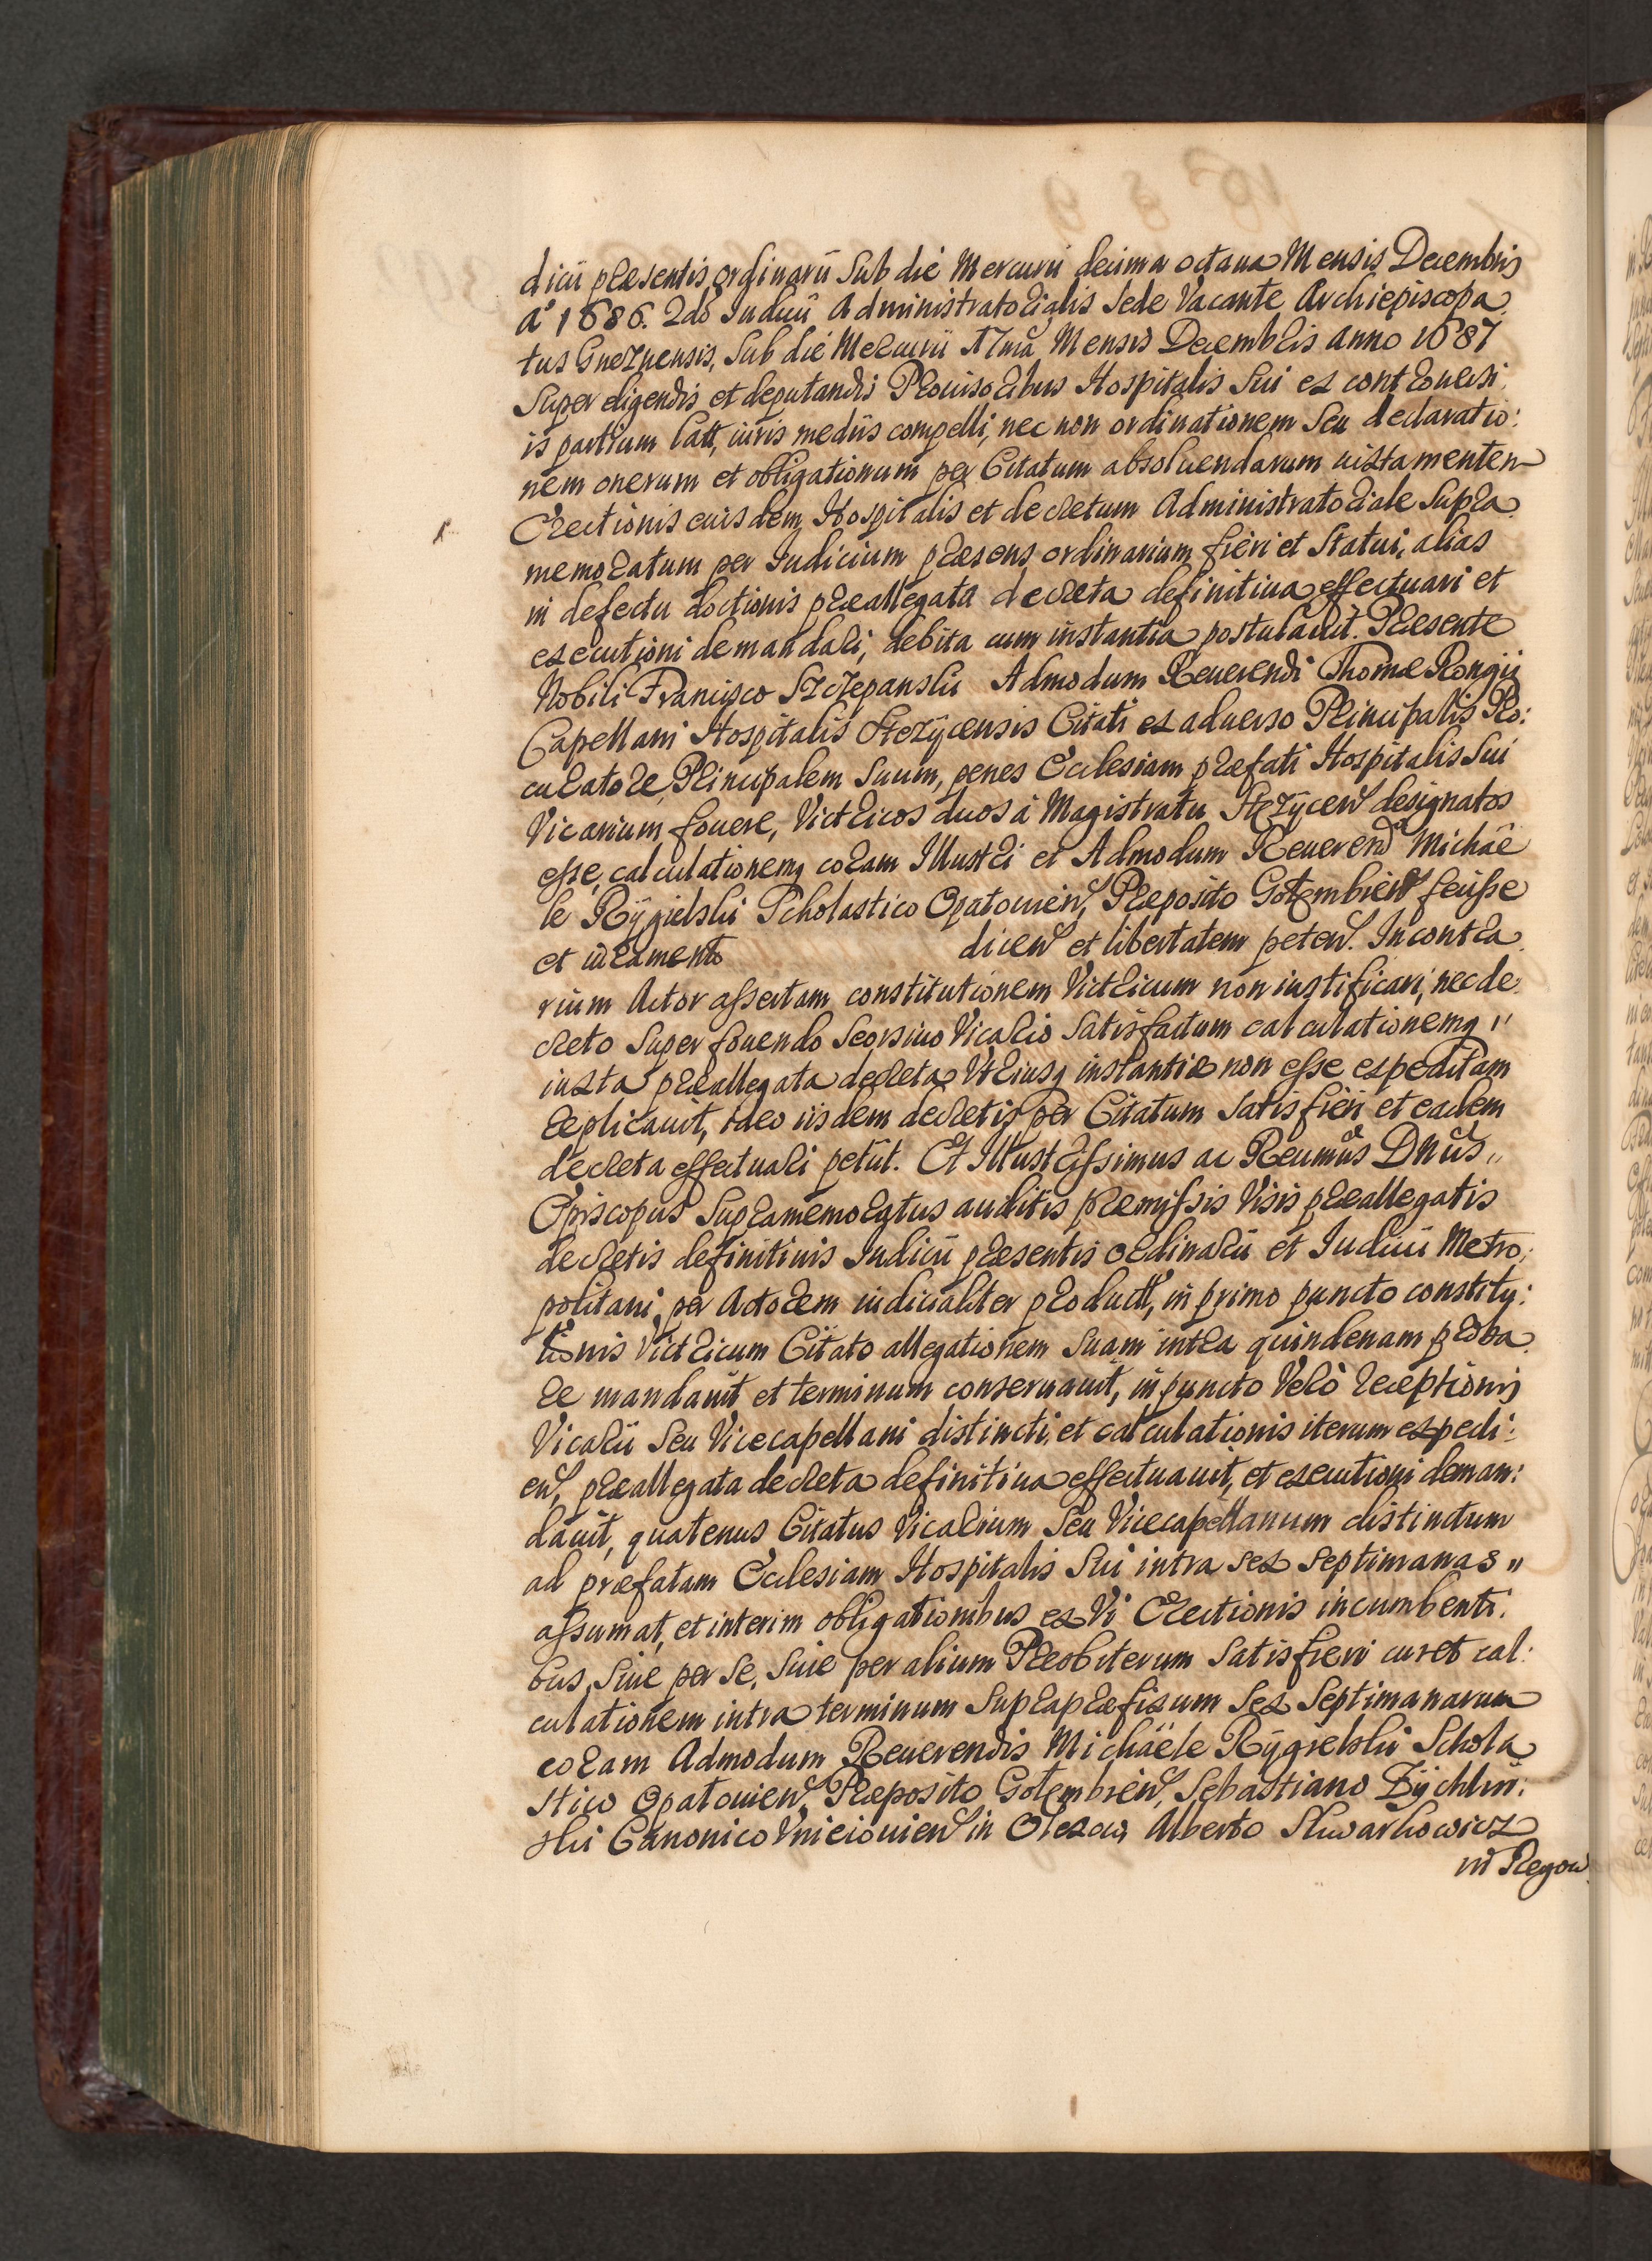 dicii præsentis ordinarii Sub die Mercurii decima octaua Mensis Decembris
Aº 1686. 2dò Iudicii Administratorialis Sede Vacante Archiepiscopa:
tus Gneznensis, Sub die Mercurii 17ma Mensis Decembris Anno 1687
Super eligendis et deputandis Prouisoribus Hospitalis Sui ex controuersi:
is partium latt, iuris mediis compelli, nec non ordinationem Seu declaratio:
nem onerum et obligationum per Citatum absoluendarum iuxta mentem
Erectionis eiusdem Hospitalis et decretum Administratoriale Supra
memoratum per Iudicium præsens ordinarium fieri et Statui, alias
in defectu doctionis præallegata decreta definitiua effectuari et
executioni demandari, debita cum instantia postulauit. Præsente
Nobili Francisco Szczepanski Admodum Reuerendi Thomæ Rongii
Capellani Hospitalis Stezÿcensis Citati ex aduerso Principalis Pro:
curatore, Principalem Suum, penes Ecclesiam præfati Hospitalis Sui
Vicarium fouere, Victricos duos à Magistratu Stezÿcen designatos
esse, calculationemq coram Illustri et Admodum Reuerend Michaë
le Rÿgielski Scholastico Opatouien, Præposito Gotembien fecisse
et iuramento dicen et libertatem peten. In contra
rium Actor assertam constitutionem Victricum non iustificari, nec de:
creto Super fouendo Seorsiuo Vicario Satisfactum calculationemq "
iuxta præallegata decreta Vtriusq instantiæ non esse expeditam
replicauit, ideo iisdem decretis per Citatum Satisfieri et eadem
decreta effectuari petiit. Et Illustrissimus ac Reumus Dnus "
Episcopus Supramemoratus auditis præmissis Visis præallegatis
decretis definitiuis Iudicii præsentis ordinarii et Iudicii Metro:
politani, per Actorem iudicialiter product, in primo puncto constitu:
tionis Victricum Citato allegationem Suam intra quindenam proba
re mandauit et terminum conseruauit, in puncto Verò receptionis
Vicarii Seu Vicecapellani distincti, et calculationis iterum expedi:
en, præallegata decreta definitiua effectuauit, et executioni deman:
dauit, quatenus Citatus Vicarium Seu Vicecapellanum distinctum
ad præfatam Ecclesiam Hospitalis Sui intra Sex Septimanas "
assumat, et interim obligationibus ex Vi Erectionis incumbenti:
bus, Siue per Se, Siue per alium Presbiterum Satisfieri curet cal:
culationem intra terminum Supra præfixum Sex Septimanarum
coram Admodum Reuerendis Michaële Rÿgielski Schola
stico Opatouien, Præposito Gotembien, Sebastiano Zÿchlin:
ski Canonico Vnieiouien in Olexow, Alberto Skwarkowicz
in Regow